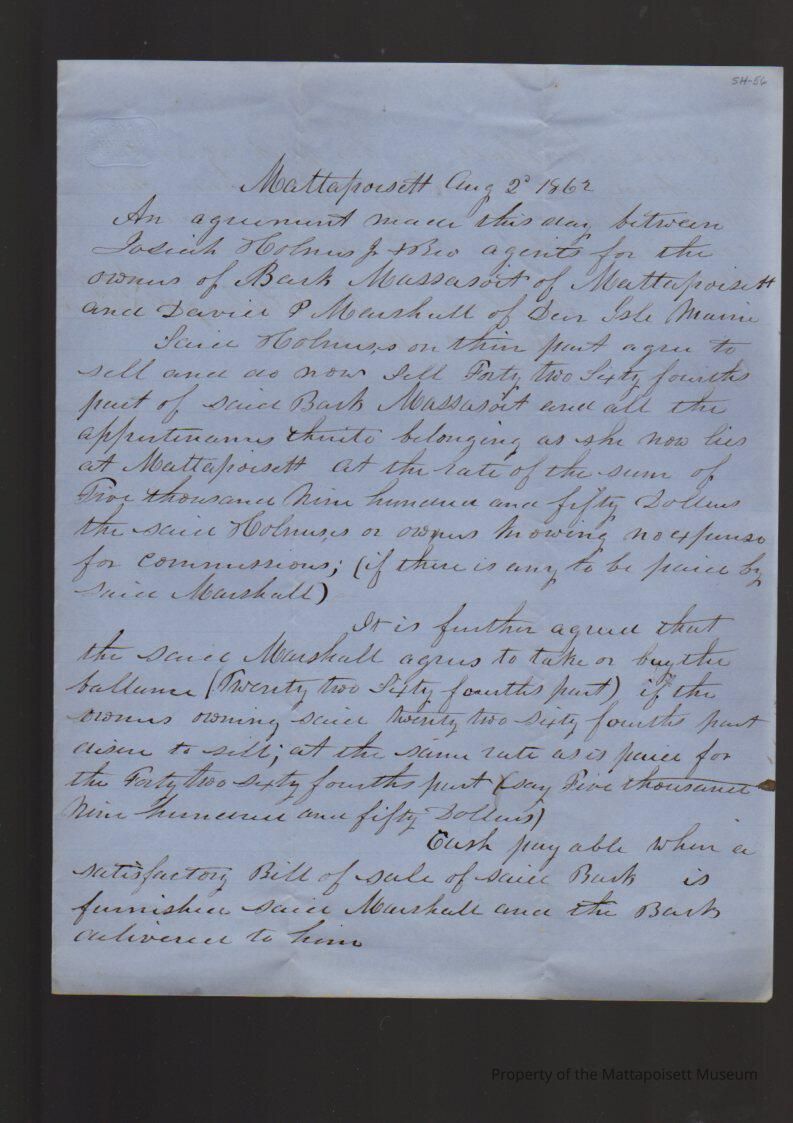 SH-56
Mattapoisett Aug 2d 1862
An agreement made this day between
Josiah Holmes Jr & Bro agents for the
owners of Bark Massasoit of Mattapoisett
and David P Marshall of Deer Isle Maine
Said Holmeses on their part agree to
sell and do now sell Forty two Sixty fourths
part of said Bark Massasoit and all the
appurtenances thereto belonging as she now lies
at Mattapoisett at the rate of the sum of
Five thousand Nine hundred and fifty Dollars
the said Holmeses or owners knowing no expense
for commissions; (if there is any to be paid by
said Marshall)
It is further agreed that
the said Marshall agrees to take or buy the
ballance (Twenty two Sixty fourths part) if the
owners owning said twenty two sixty fourths part
desire to sell; at the same rate as is paid for
the Forty two sixty fourths part (say Five thousand
Nine hundred and fifty Dollars)
Cash payable when a
satisfactory Bill of sale of said Bark is
furnished said Marshall and the Bark
delivered to him
Property of the Mattapoisett Museum